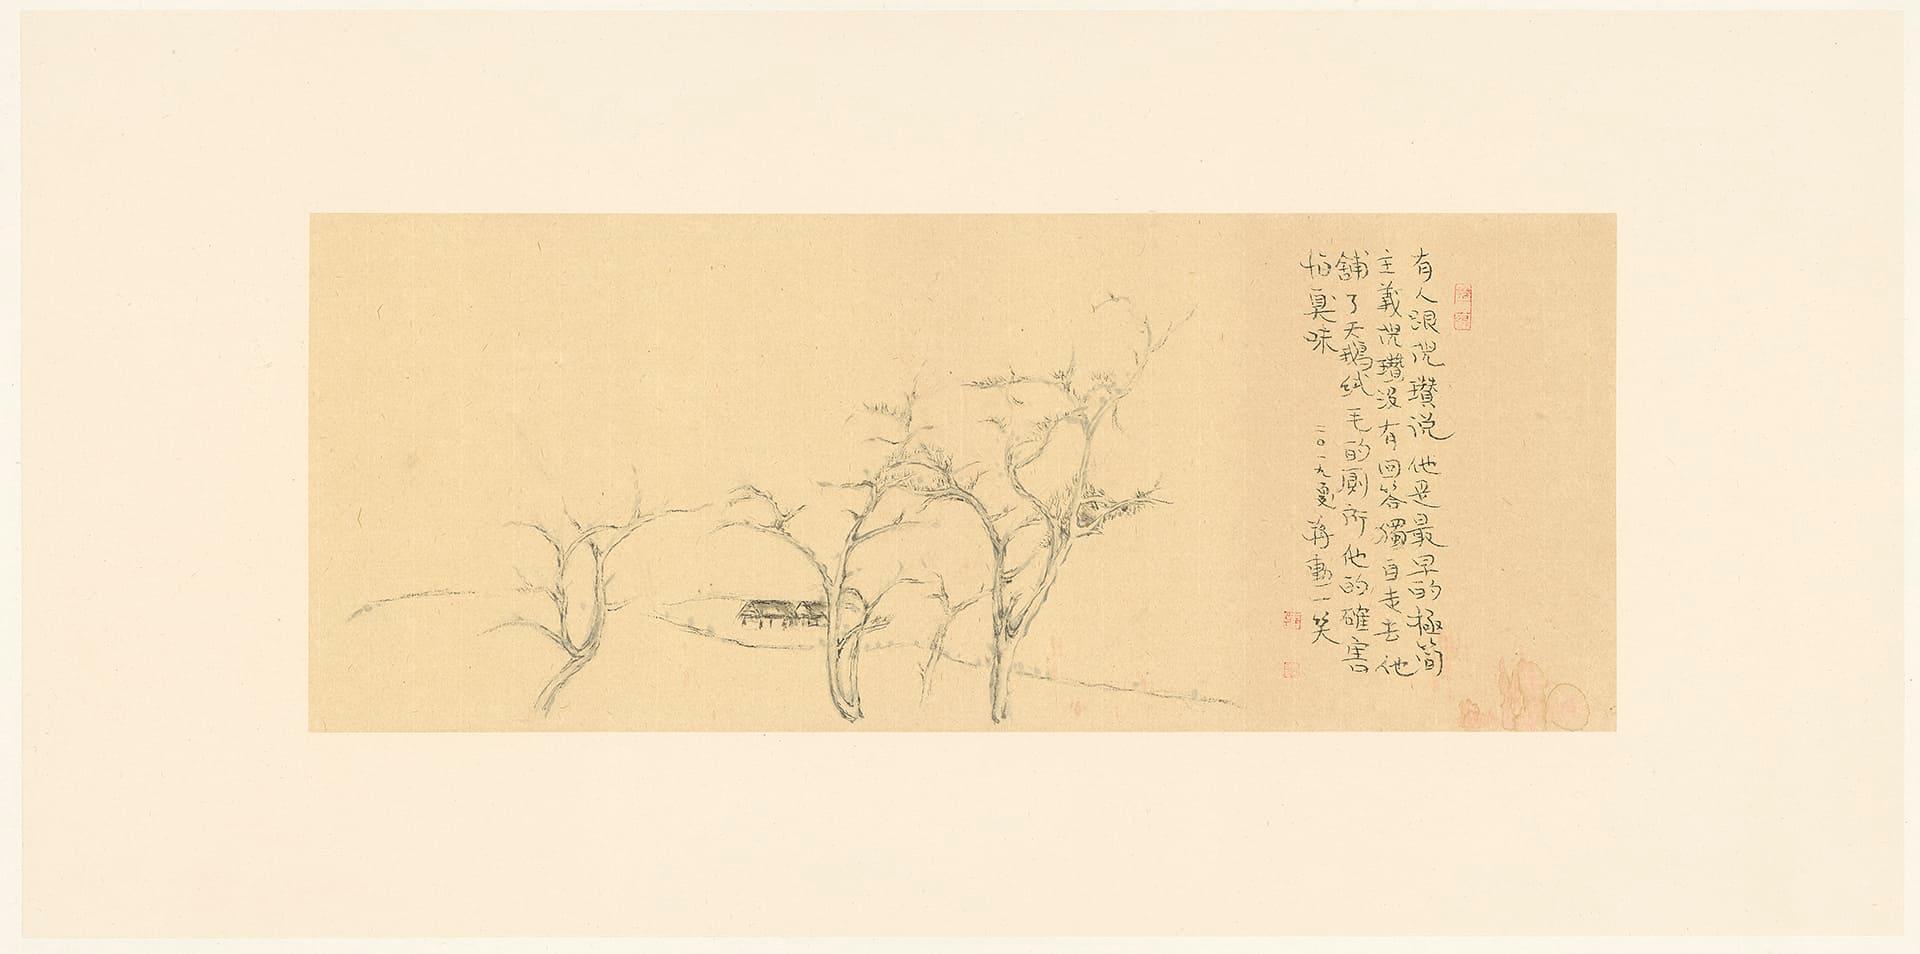 有人跟倪瓚說他是最早的極簡
主義倪瓚沒有回答獨自走去他
舖了天鵝絨毛的廁所他的確害
怕臭味
二〇一九夏蔣勳一笑